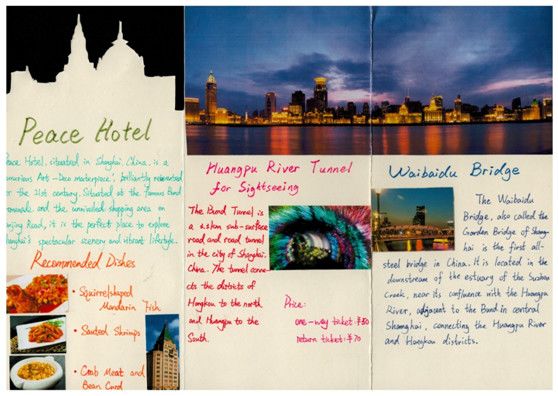 Peace Hotel
Peace Hotel, situated in Shanghai, China, is a
Art-Deco masterpiece, brilliantly
for the 21st century. Situated at the famous Bund
and the unrivalled shopping area on
Nanjing Road, it is the perfect place to explore
Shanghai's spectacular scenery and vibrant lifestyle.
Recommended Dishes
• Squirrel-shaped
Mandarin Fish
• Sauteed Shrimps
• Crab Meat and
Bean Curd
Huangpu River Tunnel
for Sightseeing
The Bund Tunnel is
a sub-surface
road and road tunnel
in the city of Shanghai,
China. The tunnel conne-
cts the districts of
Hongkou to the north
and Huangpu to the
South.
Price:
one-way ticket: ¥50
return ticket: ¥70
Waibaidu Bridge
The Waibaidu
Bridge, also called the
Garden Bridge of Shang-
hai is the first all-
steel bridge in China. It is located in the
downstream of the estuary of the Suzhou
Creek, near its confluence with the Huangpu
River, adjacent to the Bund in central
Shanghai, connecting the Huangpu River
and Hongkou districts.